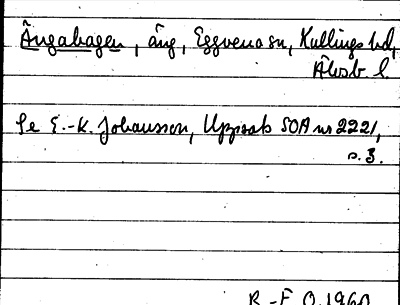 Ängahagen, äng, Eggvena sn, Kullings hd,
Älvsb. l.
Se E.-K. Johansson, Uppsats SOA nr 2221,
s. 3.
R.-F. O. 1960